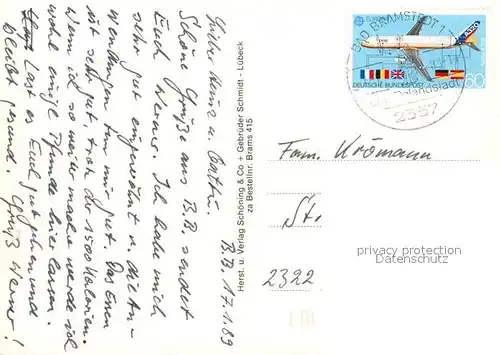 B.B. 17.1.89
Liebe Heinz u. Käthe.
Schöne Grüße aus B.B. sendet
Euch Werner. Ich habe mich
sehr gut eingewöhnt u. die An-
wendungen tun mir gut. Das Essen
ist sehr gut trotz der 1500 Kalorien.
Wenn ich so weiter mache werde ich
wohl einige Pfunde hier lassen.
Last es Euch gut gehen und
bleibt gesund. Gruß Werner!
Herst. u. Verlag Schöning & Co + Gebrüder Schmidt - Lübeck
za Bestellnr. Brams 415
EUROPA
A320
DEUTSCHE BUNDESPOST
60
BAD BRAMSTEDT 1
Rolandstadt
2357
Fam. Krömann
St.
2322
privacy protection
Datenschutz